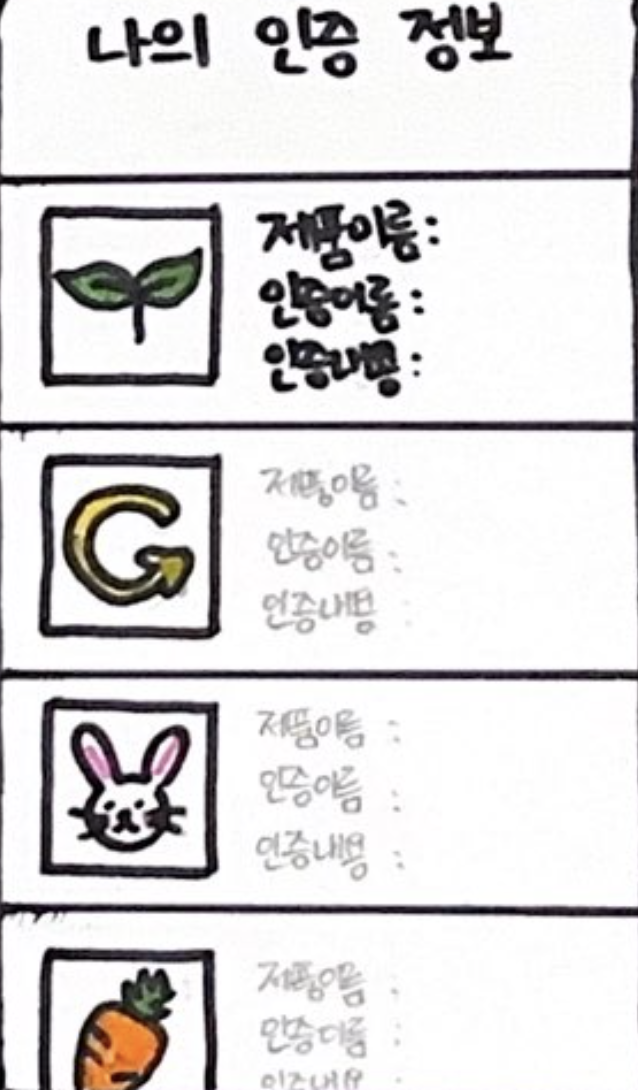 나의 인증 정보
제품이름:
인증이름:
인증내용:
G
제품이름:
인증이름:
인증내용:
제품이름:
인증이름:
인증내용:
제품이름:
인증이름:
인증내용: